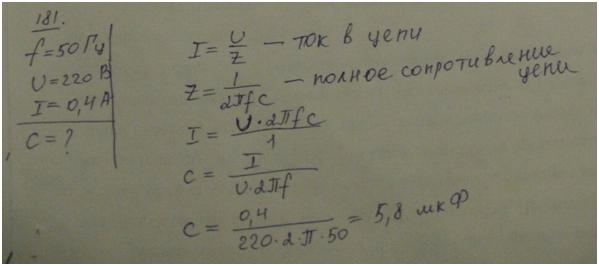 181.
f=50Гц
U=220 В
I=0,4 А
C=?
I = U/Z — ток в цепи
Z = 1/2πfC — полное сопротивление цепи
I = U·2πfC/1
C = I/U·2πf
C = 0,4/220·2·π·50 = 5,8 мкФ